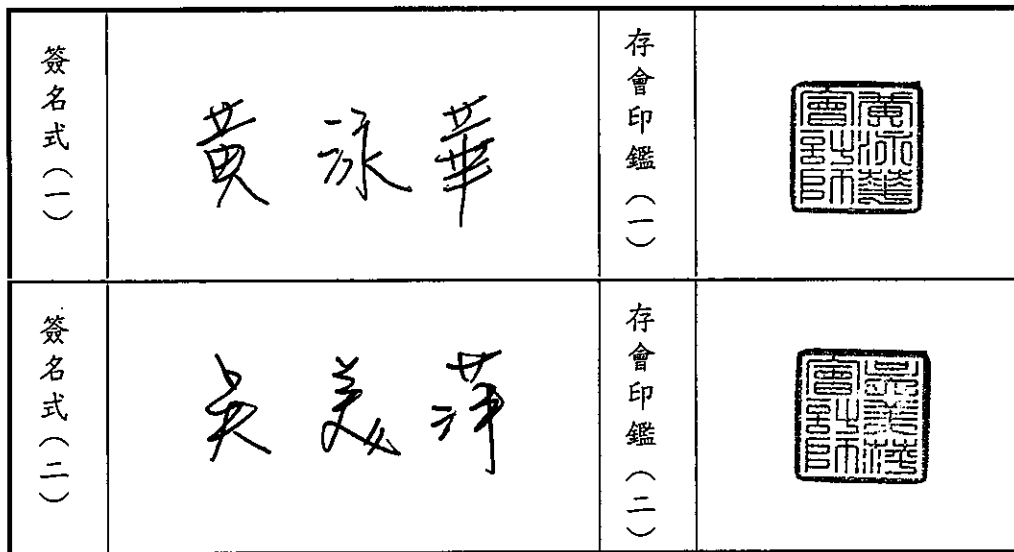 簽名式（一）
黃泳華
存會印鑑（一）
黃泳華
會計師
簽名式（二）
吳美萍
存會印鑑（二）
吳美萍
會計師